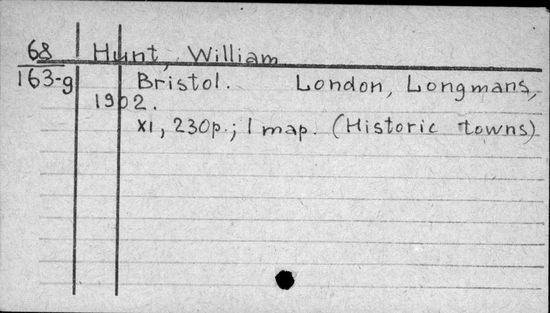 68 Hunt, William
163-g Bristol. London, Longmans,
1902.
XI, 230p.; 1 map. (Historic towns)